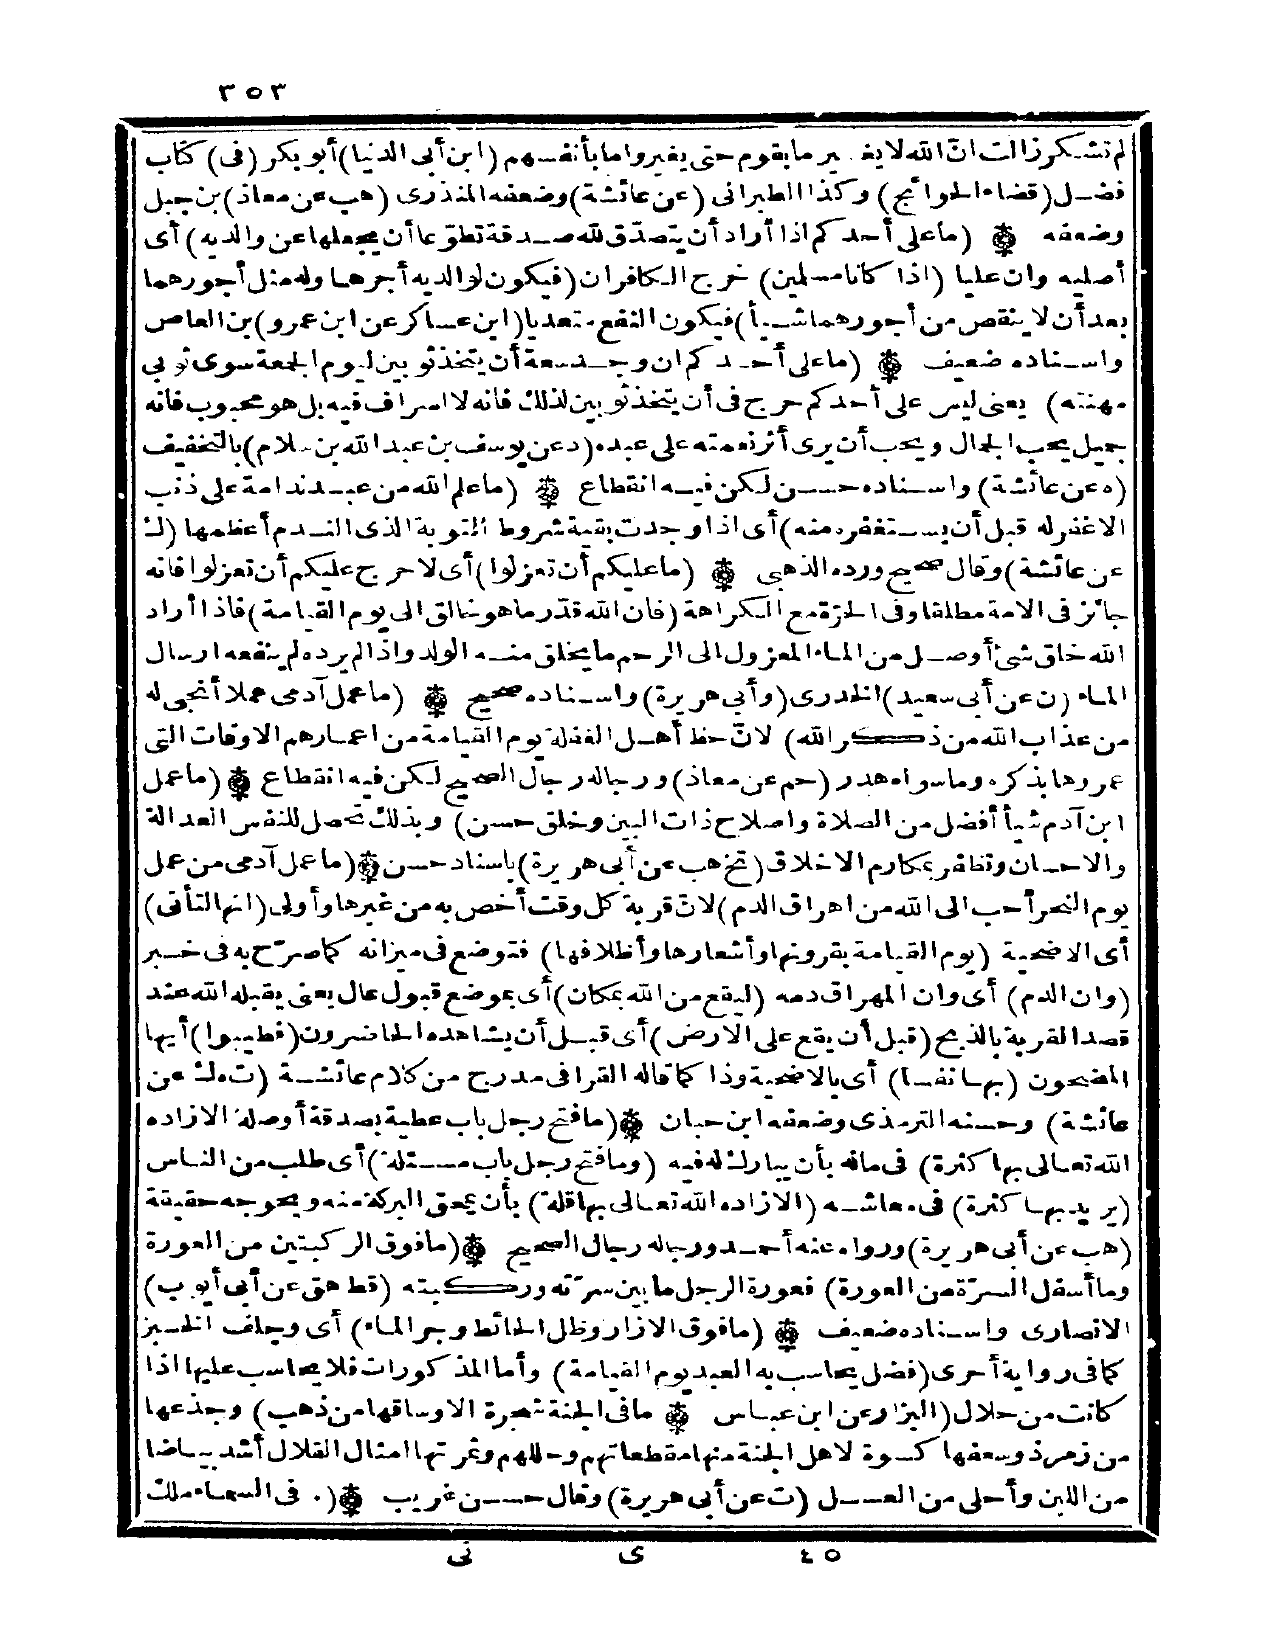 ٣٥٣
لم تشكر زالت انّ الله لا يغير ما بقوم حتى يغيروا ما بأنفسهم (ابن أبى الدنيا) أبو بكر (فى) كتاب
فضل (قضاء الحوائج) وكذا الطبرانى (عن عائشة) وضعفه المنذرى (هب عن معاذ) بن جبل
وضعفه (ما على أحدكم اذا أراد أن يتصدّق لله صدقة تطوّعا أن يجعلها عن والديه) أى
أصليه وان عليا (اذا كانا مسلمين) خرج الكافران (فيكون لوالديه أجرها وله مثل أجورهما
بعد أن لا ينقص من أجورهما شيأ) فيكون النفع متعديا (ابن عساكر عن ابن عمرو) بن العاص
واسناده ضعيف (ما على أحدكم ان وجد سعة أن يتخذ ثوبين ليوم الجمعة سوى ثوبى
مهنته) يعنى ليس على أحدكم حرج فى أن يتخذ ثوبين لذلك فانه لا اسراف فيه بل هو محبوب فانه
جميل يحب الجمال ويحب أن يرى أثر نعمته على عبده (د عن يوسف بن عبد الله بن سلام) بالتخفيف
(ه عن عائشة) واسناده حسن لكن فيه انقطاع (ما علم الله من عبد ندامة على ذنب
الا غفر له قبل أن يستغفره منه) أى اذا وجدت بقية شروط التوبة الذى الندم أعظمها (ك
عن عائشة) وقال صحيح ورده الذهبى (ما عليكم أن تعزلوا) أى لا حرج عليكم أن تعزلوا فانه
جائز فى الامة مطلقا وفى الحرّة مع الكراهة (فان الله قدّر ما هو خالق الى يوم القيامة) فاذا أراد
الله خلق شئ أوصل من الماء المعزول الى الرحم ما يخلق منه الولد واذا لم يرده لم ينفعه ارسال
الماء (ن عن أبى سعيد) الخدرى (وأبى هريرة) واسناده صحيح (ما عمل آدمى عملا أنجى له
من عذاب الله من ذكر الله) لانّ حظ أهل الغفلة يوم القيامة من اعمارهم الاوقات التى
عمروها بذكره وما سواه هدر (حم عن معاذ) ورجاله رجال الصحيح لكن فيه انقطاع (ما عمل
ابن آدم شيأ أفضل من الصلاة واصلاح ذات البين وخلق حسن) وبذلك تحصل للنفس العدالة
والاحسان وتظفر بمكارم الاخلاق (تخ هب عن أبى هريرة) باسناد حسن (ما عمل آدمى من عمل
يوم النحر أحب الى الله من اهراق الدم) لانّ قربة كل وقت أخص به من غيرها وأولى (انها لتأتى)
أى الاضحية (يوم القيامة بقرونها وأشعارها وأظلافها) فتوضع فى ميزانه كما صرّح به فى خبر
(وان الدم) أى وان المهراق دمه (ليقع من الله بمكان) أى بموضع قبول عال يعنى يقبله الله عند
قصد القربة بالذبح (قبل أن يقع على الارض) أى قبل أن يشاهده الحاضرون (فطيبوا) أيها
المضحون (بها نفسا) أى بالاضحية وذا كما قاله العراقى مدرج من كلام عائشة (ت ه ك عن
عائشة) وحسنه الترمذى وضعفه ابن حبان (ما فتح رجل باب عطية بصدقة أو صلة الا زاده
الله تعالى بها كثرة) فى ماله بأن يبارك له فيه (وما فتح رجل باب مسئلة) أى طلب من الناس
(يريد بها كثرة) فى معاشه (الا زاده الله تعالى بها قلة) بأن يمحق البركة منه ويحوجه حقيقة
(هب عن أبى هريرة) ورواه عنه أحمد ورجاله رجال الصحيح (ما فوق الركبتين من العورة
وما أسفل السرّة من العورة) فعورة الرجل ما بين سرّته وركبته (قط هق عن أبى أيوب)
الانصارى واسناده ضعيف (ما فوق الازار وظل الحائط وجر الماء) أى وجلف الخبز
كما فى رواية أخرى (فضل يحاسب به العبد يوم القيامة) وأما المذكورات فلا يحاسب عليها اذا
كانت من حلال (البزار عن ابن عباس ما فى الجنة شجرة الا وساقها من ذهب) وجذعها
من زمرذ وسعفها كسوة لاهل الجنة منها مقطعاتهم وحللهم وثمرتها امثال القلال أشد بياضا
من اللبن وأحلى من العسل (ت عن أبى هريرة) وقال حسن غريب (ما فى السماء ملك
٤٥ ى نى